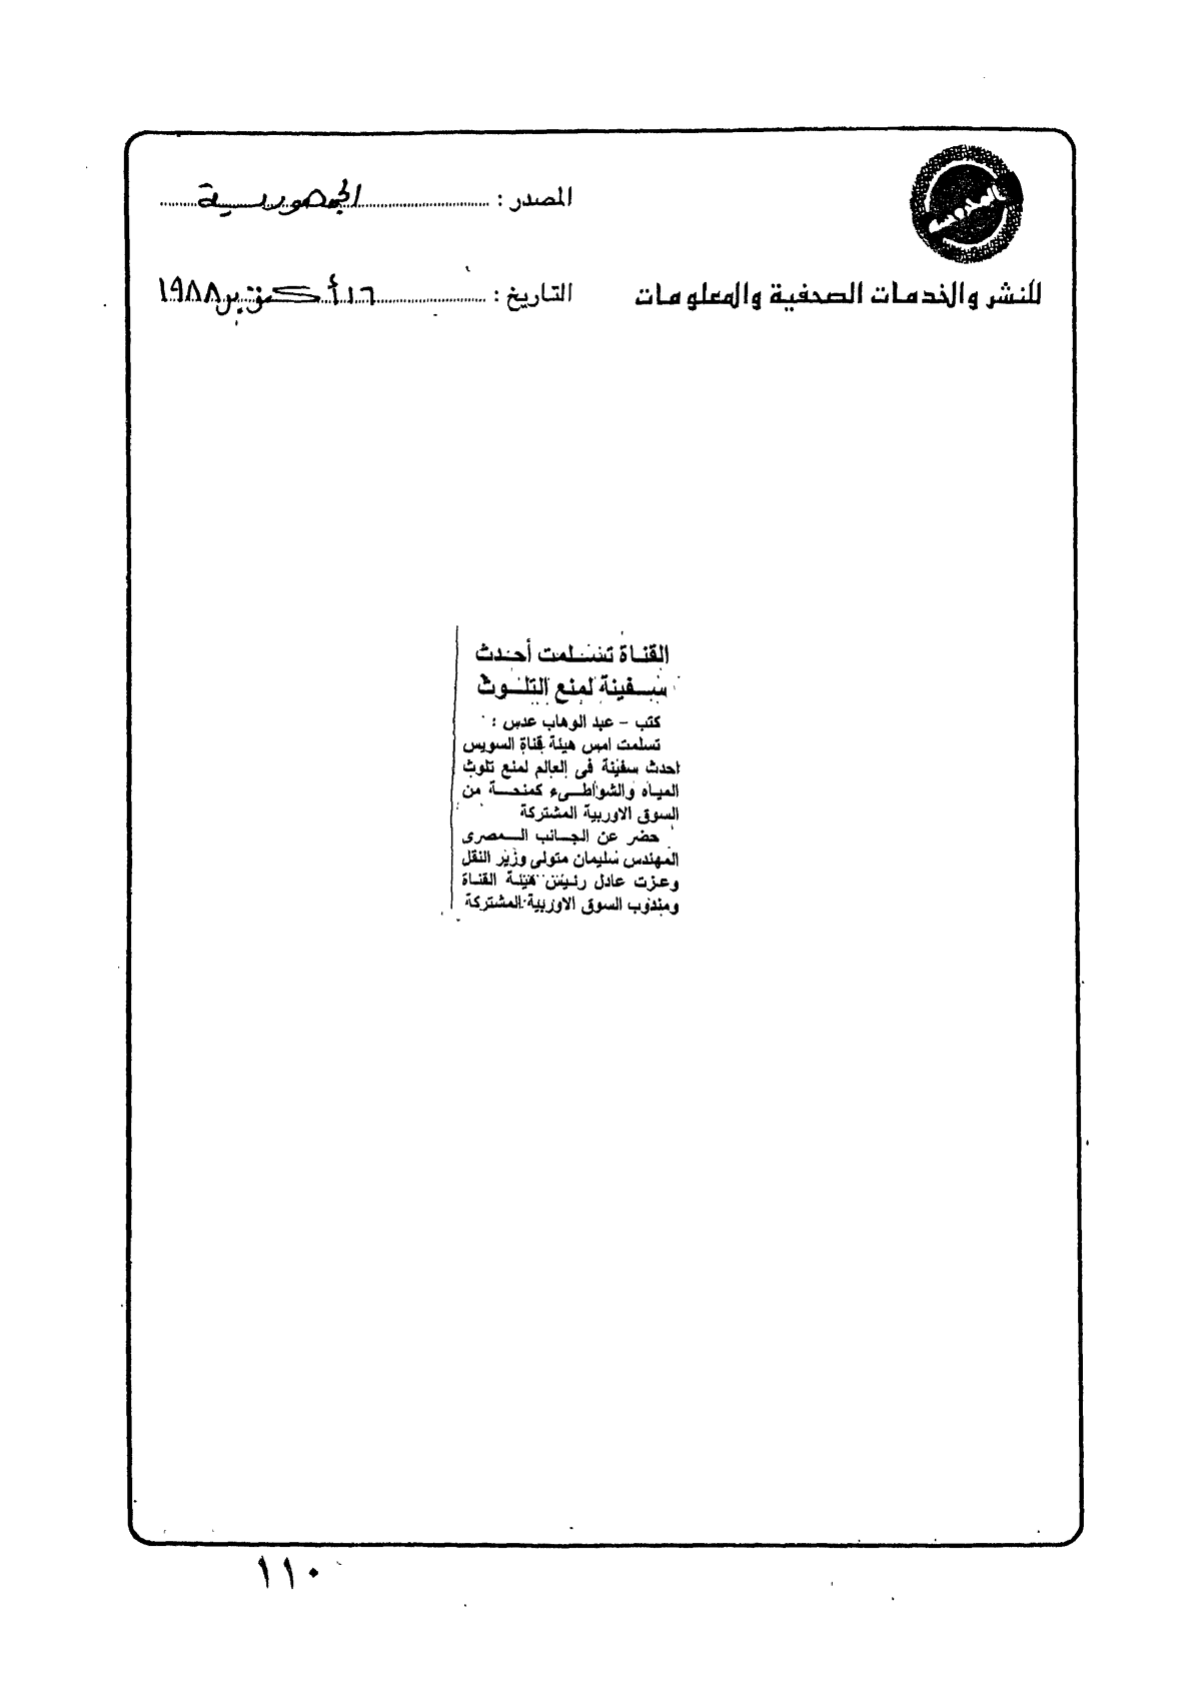 المصدر : الجمهورية
للنشر والخدمات الصحفية والمعلومات
التاريخ : ١٦ أكتوبر ١٩٨٨
القناة تتسلمت أحدث
سفينة لمنع التلوث
كتب - عبد الوهاب عدس :
تسلمت امس هيئة قناة السويس
احدث سفينة فى العالم لمنع تلوث
المياه والشواطىء كمنحة من
السوق الاوربية المشتركة
حضر عن الجانب المصرى
المهندس سليمان متولى وزير النقل
وعزت عادل رئيس هيئة القناة
ومندوب السوق الاوربية المشتركة
١١٠